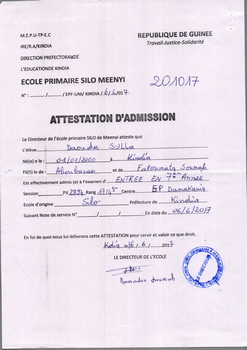 M.E.P.U-TP-E.C
REPUBLIQUE DE GUINEE
IRE/R.A/KINDIA
Travail-Justice-Solidarité
DIRECTION PREFECTORALE
L'EDUCATIONDE KINDIA
ECOLE PRIMAIRE SILO MEENYI
201017
N° : /EPF-UNI/ KINDIA
ATTESTATION D'ADMISSION
Le Directeur de l'école primaire SILO de Meenyi atteste que:
L'élève Daouda Sylla
Né(e) le : 01/01/2000 à Kindia
Fil(s) le de : Aboubacar et de Fatoumata Soumah
Est effectivement admis (e) à l'examen d' ENTREE EN 7ème Année
Session PV Rang Centre EP Damakania
Ecole d'origine Silo Préfecture de Kindia
Suivant Note de service N° En date du 06/6/2017
En foi de quoi nous lui délivrons cette ATTESTATION pour servir et valoir ce que droit.
Kdia 2017
LE DIRECTEUR DE L'ECOLE